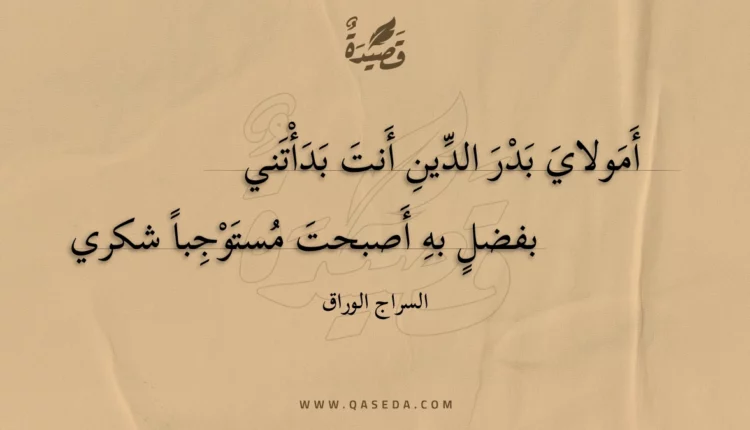 قَصِيْدَةٌ
أَمَولايَ بَدْرَ الدِّينِ أَنتَ بَدَأْتَني
بفضلٍ بهِ أَصبحتَ مُستَوْجِباً شكري
السراج الوراق
WWW.QASEDA.COM